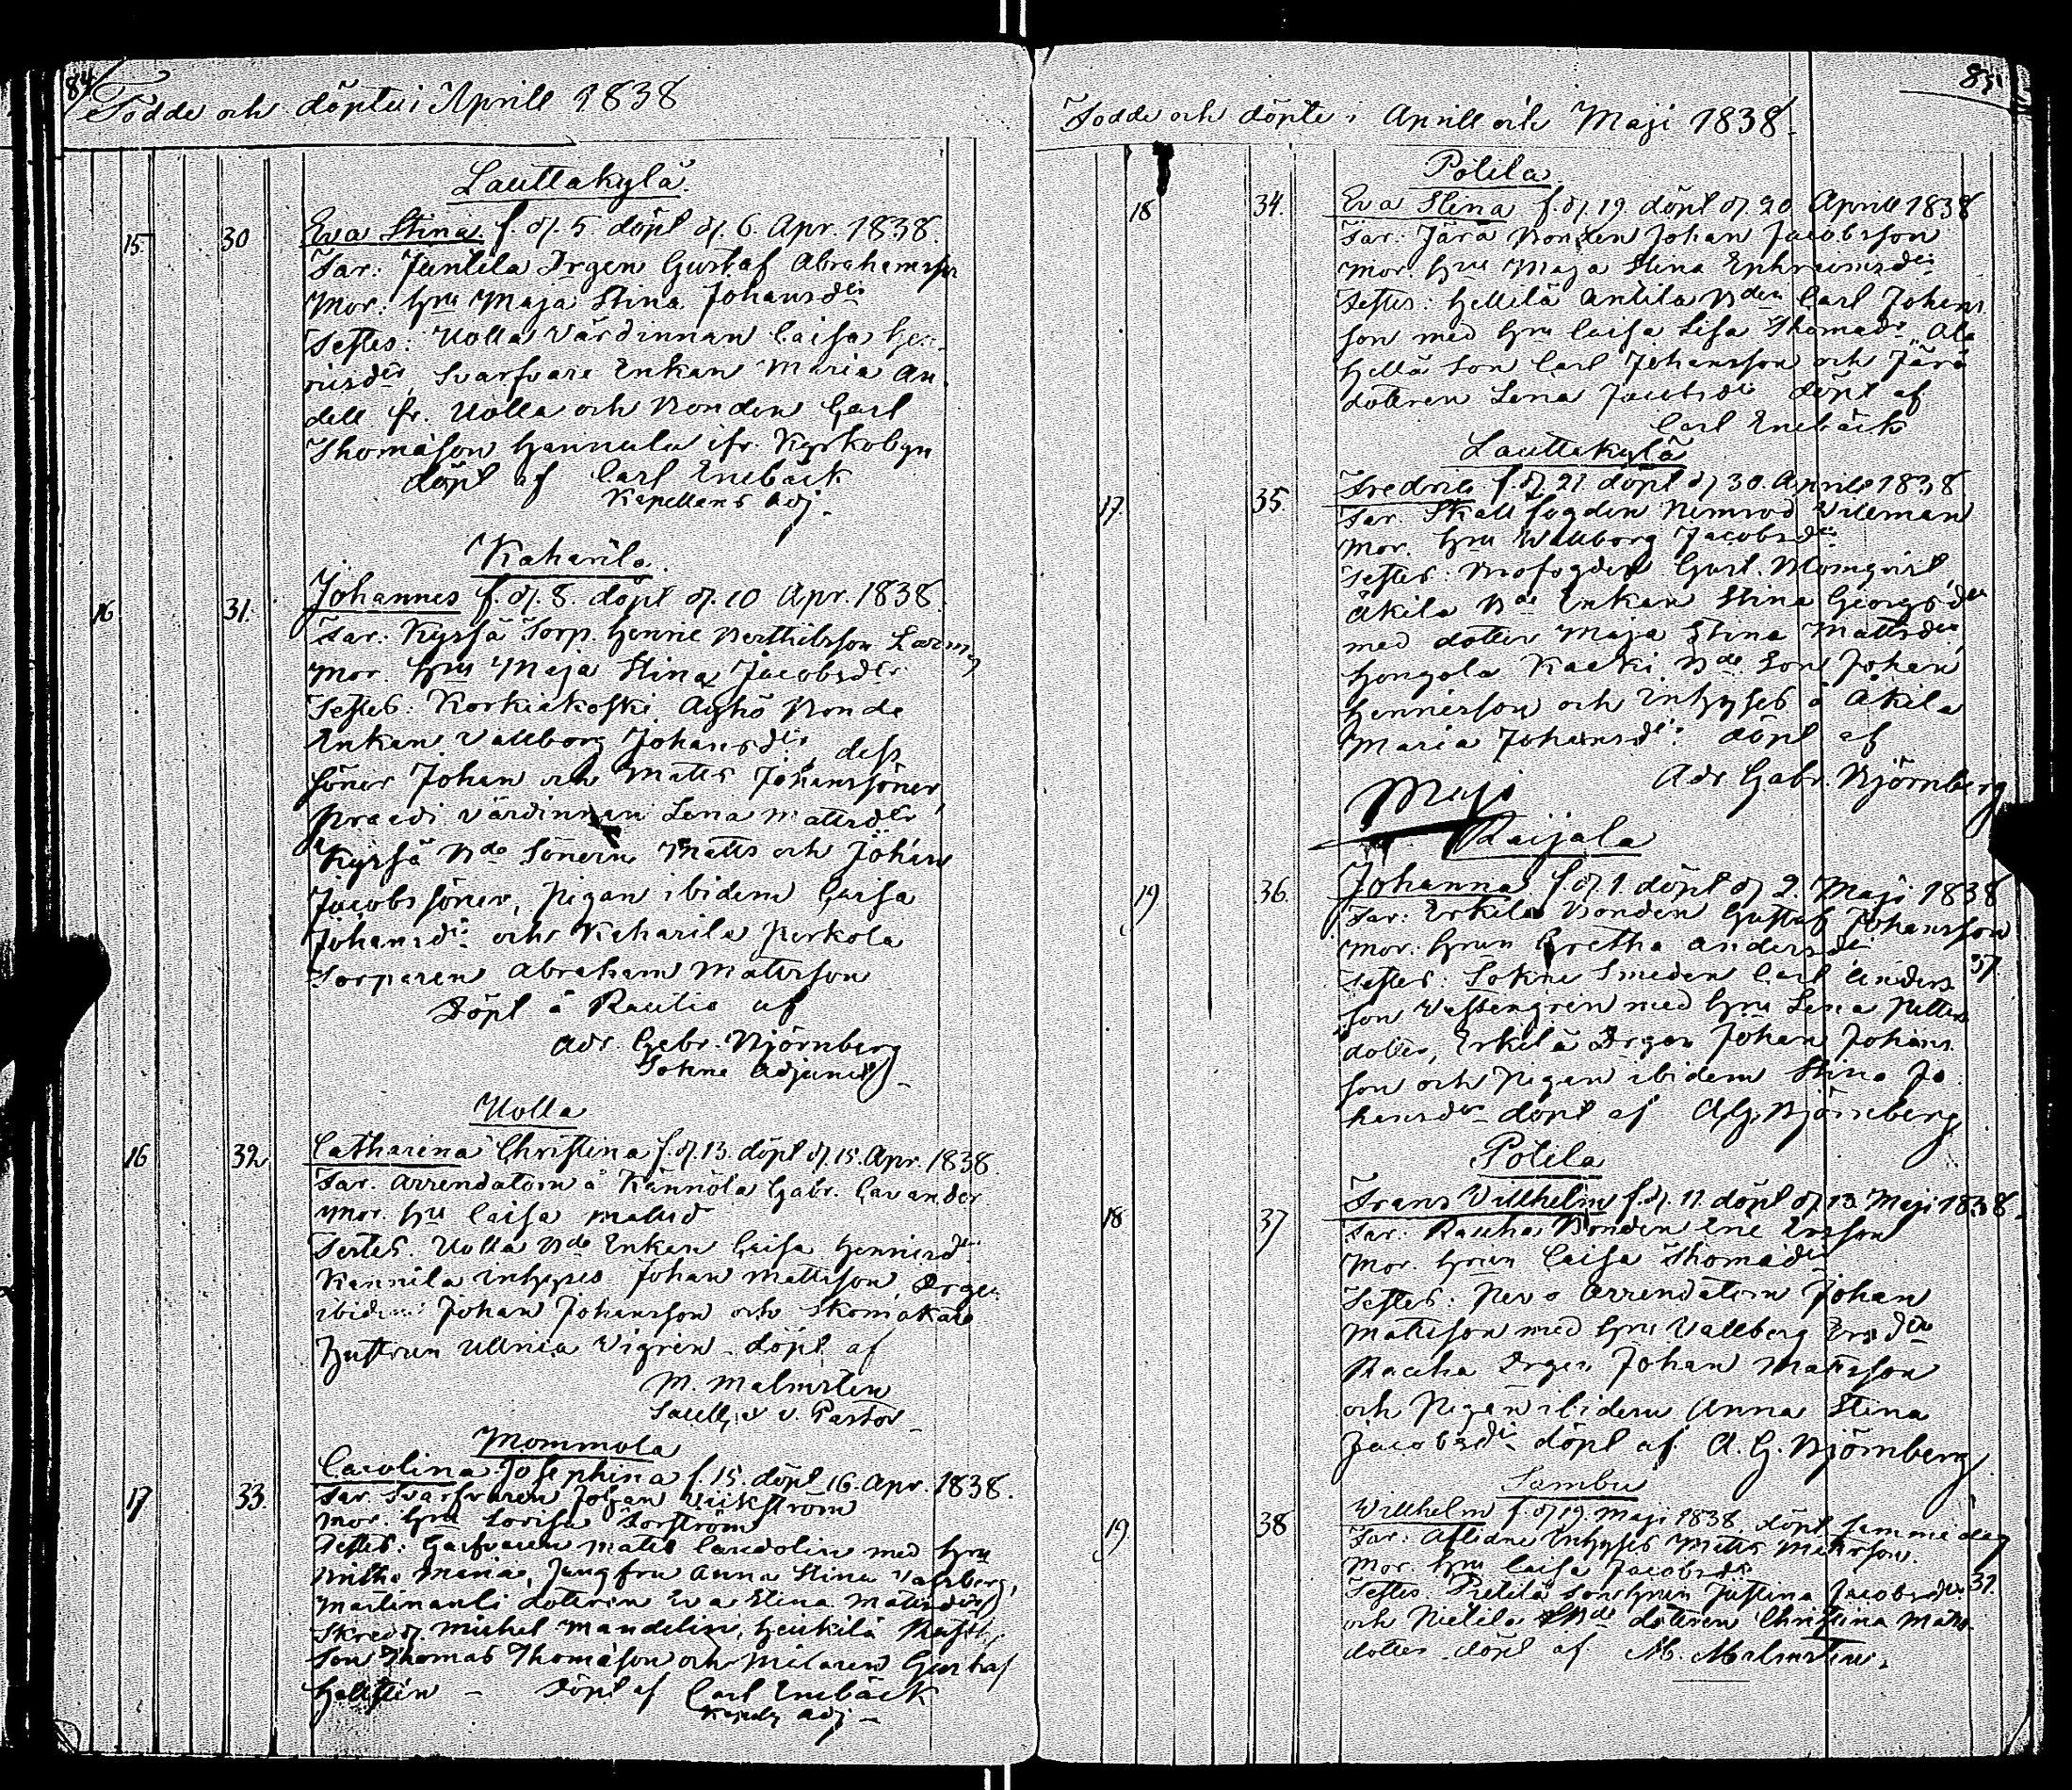 84
Födde och döpte i Aprill 1838
Lauttakylä
15. 30 Eva Stina f. d. 5 döpt d. 6. Apr. 1838.
Far: Juntila Drgen Gustaf Abrahamsson
Mor: hru Maja Stina Johansdr
Testes: Uolla Värdinnan Caisa Hen-
ricsdr, Svarfvare Enkan Maria An-
dell fr. Uolla och Bonden Carl
Thomasson Hannula ifr. Kyrkobyn
döpt af Carl Enebäck
Kapellans Adj.
Kaharila.
16. 31. Johannes f. d. 8. döpt d. 10 Apr. 1838.
Far. Kyrsä Torp. Henric Berthilsson
Mor. hru Maja Stina Jacobsdr
Testes: Korkiakoski Ayhö Bonde
Enkan Vallborg Johansdr, dess
söner Johan och Matts Johanssöner,
Praedi värdinnan Lena Mattsdr,
Kyrsä Bde Sönern Matts och Johan
Jacobs söner, Pigan ibidem Caisa
Johansdr och Kaharila Perkola
Torparen Abraham Mattsson
Döpt å Rautio af
Adr. Gabr. Björnberg
Sokne Adjunct
Uolla
16 32 Catharina Christina f. d. 13. döpt d. 15. Apr. 1838.
Far. Arrendatorn å Kännölä Gabr. Cavander
Mor. hru Caisa
Testes. Uolla Bde Enkan Caisa Henricsdr
Kännilä inhyses Johan Mattsson, Drgen
ibidem Johan Johansson och Skomakare
Hustrun Ulrica Vigren döpt af
M. Malmsten
Sacell. et v. Pastor
Mommola
17 33. Carolina Josephina f. 15. döpt 16. Apr. 1838.
Far. Svarfvaren Johan Vickström
Mor. hru Lovisa Forström
Testes: Garfvaren Matts Candolin med hru
Maria, Jungfru Anna Stina
Martinanti dottren Eva Stina Mattsdr
Skredd. Michel Mandelin, Heickilä
Son Thomas Thomasson och Målaren Gustaf
Hellsten – Döpt af Carl Enebäck
Kapells Adj –
85
Födde och döpte i Aprill och Maji 1838
Potila
18 34. Eva Stina f. d. 19. döpt d. 20 Aprill 1838
Far: Järä Bonden Johan Jacobsson
Mor. hru Maja Stina Ephraimsdr
Testes: Hellilä Antila Bden Carl Johans
son med hru Caisa Lisa Thomasdr Ala
Hellä Son Carl Johansson och Järä
dottren Lena Jacobsdr döpt af
Carl Enebäck
Lauttakylä
17. 35. Fredric f. d. 21. döpt d. 30. Aprill 1838
Far. Skall fogden Nimrod Villman
Mor. hru Wallborg Jacobsdr
Testes: Brofogden Gust. Blomqvist
Äkilä Bde Enkan Stina Georgsdr
med dotter Maja Stina Mattsdr,
Hongola Kaeki Bde Son Johan
Henricsson och Inhyses å Äkilä
Maria Johansdr döpt af
Adr Gabr. Björnberg
Maji
Raijala
19 36. Johanna f. d. 1. döpt d. 2. Maji 1838
Far: Erkilä Bonden Gustaf Johansson
Mor: hrun Gretha Andersdr
37
Testes: Sokne Smeden Carl Anders
son Vestengren med hru Lena Petters
dotter, Erkilä Drgen Johan Johans
son och Pigan ibidem Stina Jo
hansdr döpt af A G Björnberg
Potila
18 37 Frans Villhelm f. d. 11. döpt d. 13 Maji 1838.
Far: Raucha Bonden Eric Ersson
Mor. hrun Caisa Thomasdr
Testes: Arrendatorn Johan
Mattsson med hru Vallberg Ersdr
Raucha Drgen Johan Mattsson
och Pigan ibidem Anna Stina
Jacobsdr döpt af. A. G. Björnberg
Sambu
19 38 Villhelm f. d. 19. Maji 1838. döpt samma dag
Far: Aflidne Inhyses Matts Mattsson.
Mor. hru Caisa Jacobsdr
37.
Testes Pietilä sonhrun Justina Jacobsdr
och Pietilä Bde dottren Christina Matts
dotter döpt af M. Malmsten.